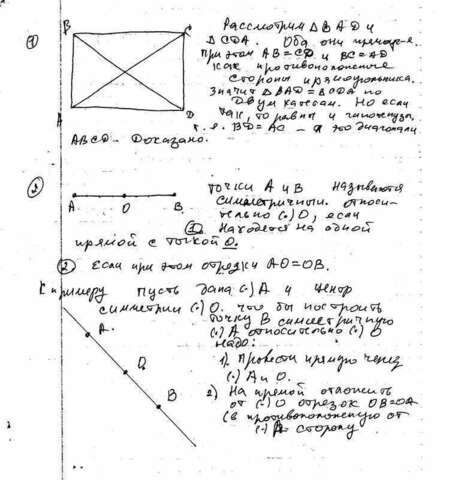 1
B C
A D
Рассмотрим △BAD и
△CDA. Оба они прямоуг-е.
При этом AB=CD и BC=AD
как противоположные
стороны прямоугольника.
Значит △BAD=△CDA по
двум катетам. Но если
так, то равны и гипотенузы.
т.е. BD=AC - а это диагонали
ABCD - Доказано.
2
A O B
точки A и B называются
симметричными относи-
тельно (.) O, если
1. Находятся на одной
прямой с точкой O.
2 Если при этом отрезки AO=OB.
К примеру пусть дана (.) A и центр
симметрии (.) O. что бы построить
точку B симметричную
(.) A относительно (.) O
надо:
A.
O
B
1). Провести прямую через
(.) A и O.
2) На прямой отложить
от (.) O отрезок OB=OA
(в противоположную от
(.) A сторону